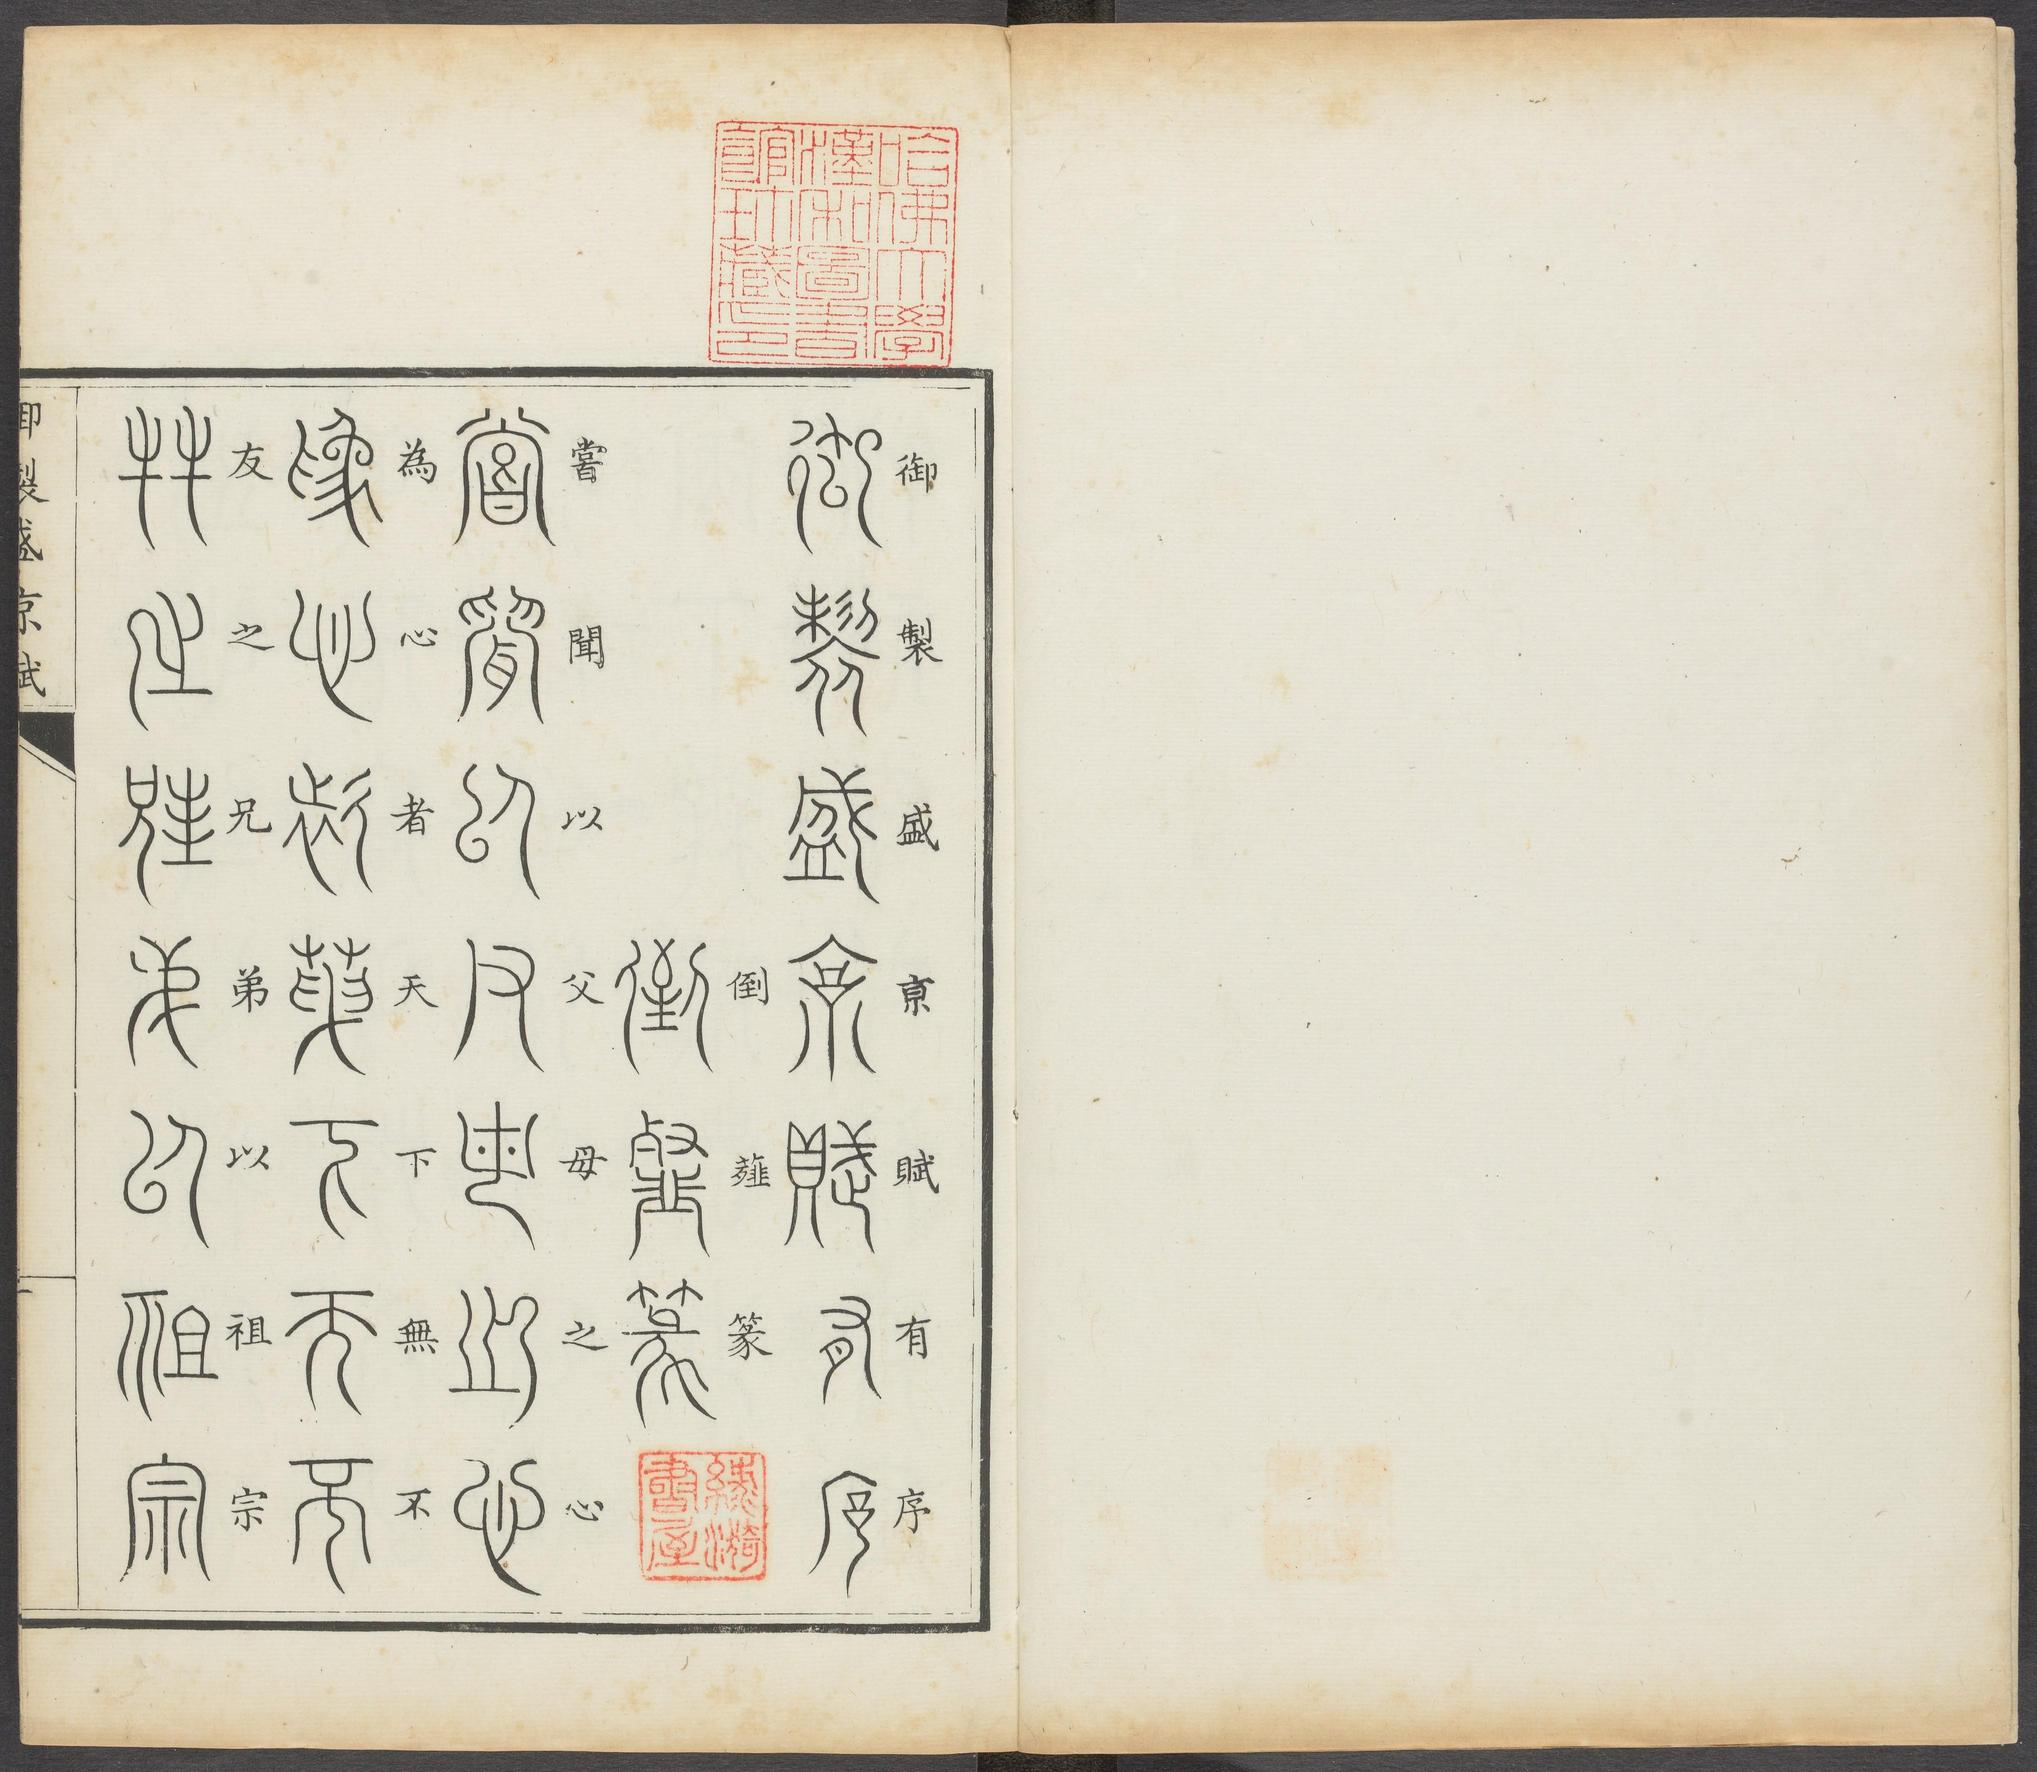 哈佛大學
漢和圖書
館珍藏印
御製盛京賦有序
倒薤篆
綉漪
書屋
嘗聞以父母之心
為心者天下無不
友之兄弟以祖宗
御製盛京賦